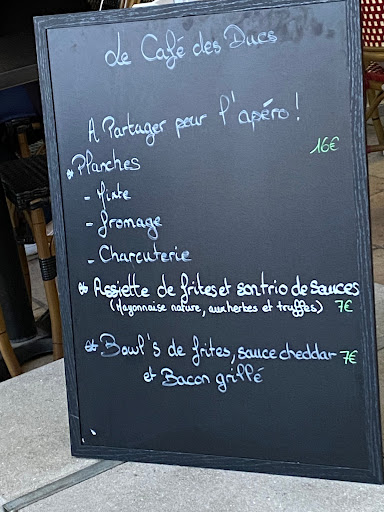 Le Café des Ducs
A Partager pour l'apéro!
* Planches 16€
- Mixte
- fromage
- Charcuterie
* Assiette de frites et son trio de sauces
(Mayonnaise nature, aux herbes et truffes) 7€
* Bowl's de frites, sauce cheddar 7€
et Bacon grillé